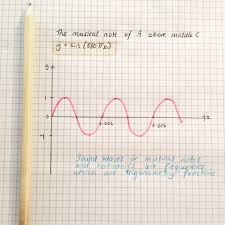 The musical note of A above middle C
y = sin (880πx)
y
1
0.002
x
-1
Sound waves or musical notes
and are frequencies
which are trigonometric functions